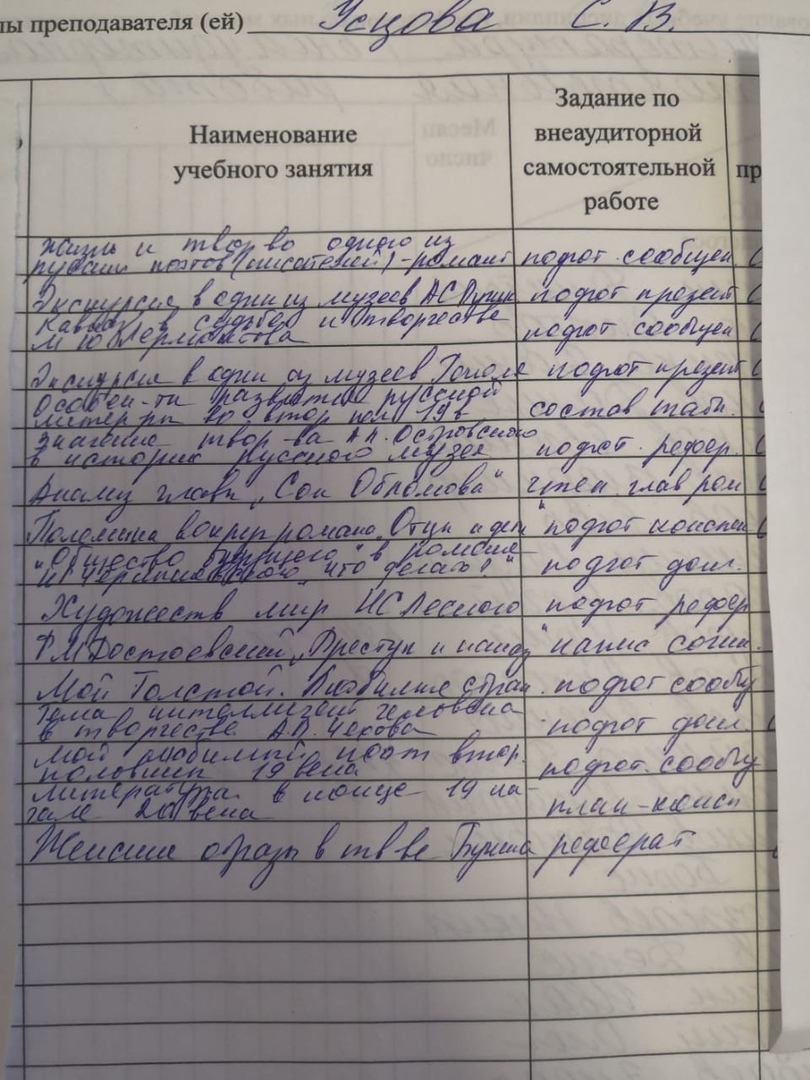 лы преподавателя (ей) Усцова С. В.
Наименование учебного занятия
Задание по внеаудиторной самостоятельной работе
пр
Жизнь и твор во одного из
русских поэтов (писателей) - романт подгот сообщен
Экскурсия в один из музеев АС Пушк подгот презент
Кавказ в судьбе и творчестве
М Ю Лермонтова подгот сообщен
Экскурсия в один из музеев Гоголя подгот презент
Особен-ти развития русской
литер ры во втор пол 19 в состав табл.
Значение твор-ва А.Н. Островского
в истории русского музея подгот. рефер.
Анализ главы „Сон Обломова“ чтен. глав ром
Полемика вокруг романа „Отцы и дети“ подгот конспек
"Общество будущего" в романе
НГ Чернышевского „Что делать?“ подгот докл.
Художеств мир НС Лескова подгот рефер
Ф М Достоевский „Преступ и наказ“ напис сочин.
Мой Толстой. Любимые стран. подгот сообщ
Тема интеллиген человека
в творчестве А.П. Чехова подгот докл.
Мой любимый поэт втор.
половины 19 века подгот. сообщ
Литература в конце 19 на-
чале 20 века план-консп
Женские образы в тв ве Бунина реферат